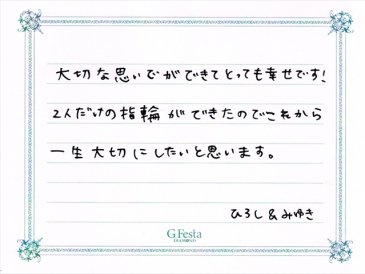 大切な思いでができてとっても幸せです!
2人だけの指輪ができたのでこれから
一生大切にしたいと思います。
ひろし&みゆき
G.Festa
DIAMOND